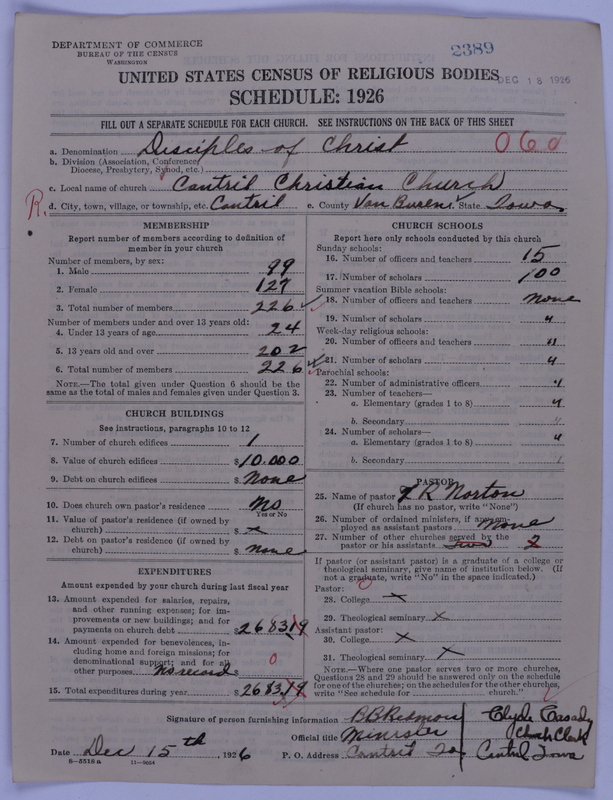 DEPARTMENT OF COMMERCE
BUREAU OF THE CENSUS
WASHINGTON
2389
UNITED STATES CENSUS OF RELIGIOUS BODIES
DEC 18 1926
SCHEDULE: 1926
FILL OUT A SEPARATE SCHEDULE FOR EACH CHURCH. SEE INSTRUCTIONS ON THE BACK OF THIS SHEET
a. Denomination Disciples of Christ 060
b. Division (Association, Conference,
Diocese, Presbytery, Synod, etc.)
c. Local name of church Cantril Christian Church
R. d. City, town, village, or township, etc. Cantril e. County Van Buren State Iowa
MEMBERSHIP
Report number of members according to definition of
member in your church
Number of members, by sex:
1. Male 99
2. Female 127
3. Total number of members 226
Number of members under and over 13 years old:
4. Under 13 years of age 24
5. 13 years old and over 202
6. Total number of members 226
NOTE.—The total given under Question 6 should be the
same as the total of males and females given under Question 3.
CHURCH BUILDINGS
See instructions, paragraphs 10 to 12
7. Number of church edifices 1
8. Value of church edifices $10.000
9. Debt on church edifices $ None
10. Does church own pastor's residence No
Yes or No
11. Value of pastor's residence (if owned by
church) $ x
12. Debt on pastor's residence (if owned by
church) $ None
EXPENDITURES
Amount expended by your church during last fiscal year
13. Amount expended for salaries, repairs,
and other running expenses; for im-
provements or new buildings; and for
payments on church debt $268319
14. Amount expended for benevolences, in-
cluding home and foreign missions; for
denominational support; and for all 0
other purposes No record $
15. Total expenditures during year $268319
CHURCH SCHOOLS
Report here only schools conducted by this church
Sunday schools:
16. Number of officers and teachers 15
17. Number of scholars 100
Summer vacation Bible schools:
18. Number of officers and teachers None
19. Number of scholars "
Week-day religious schools:
20. Number of officers and teachers "
21. Number of scholars "
Parochial schools:
22. Number of administrative officers "
23. Number of teachers—
a. Elementary (grades 1 to 8) "
b. Secondary "
24. Number of scholars—
a. Elementary (grades 1 to 8) "
b. Secondary "
PASTOR
25. Name of pastor R Norton
(If church has no pastor, write "None")
26. Number of ordained ministers, if any, em-
ployed as assistant pastors None
27. Number of other churches served by the
pastor or his assistants Two 2
If pastor (or assistant pastor) is a graduate of a college or
theological seminary, give name of institution below. (If
not a graduate, write "No" in the space indicated.)
Pastor:
28. College x
29. Theological seminary x
Assistant pastor:
30. College x
31. Theological seminary x
NOTE.—Where one pastor serves two or more churches,
Questions 28 and 29 should be answered only on the schedule
for one of the churches; on the schedules for the other churches,
write "See schedule for church."
Signature of person furnishing information B B Redmon Clyde Casady
Official title Minister Church Clerk
Date Dec 15th, 1926 P. O. Address Cantril Ia Cantril Iowa
8—5516 a 11—9664